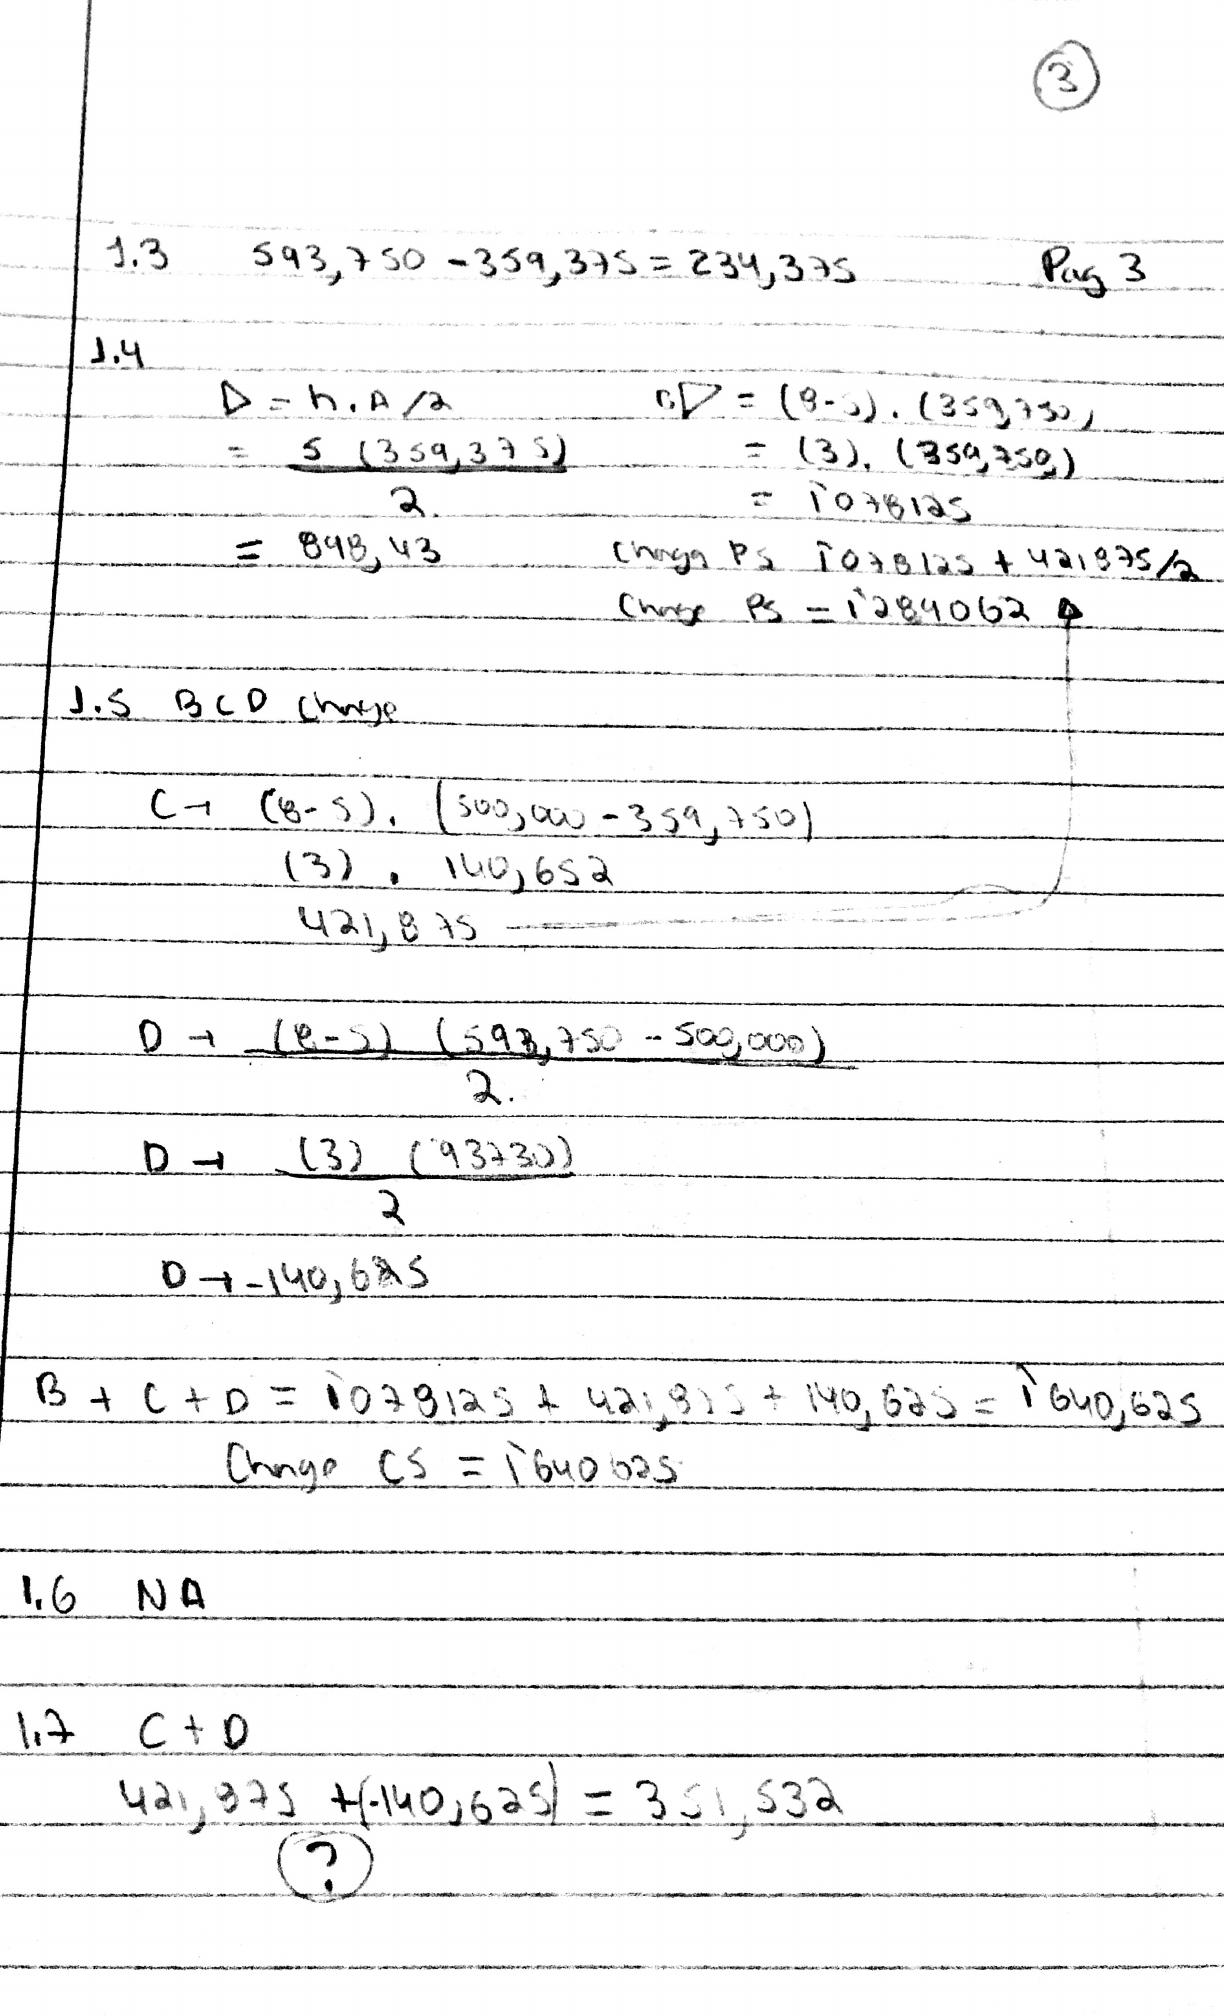 3
1.3 593,750 - 359,375 = 234,375 Pag 3
1.4
D = h.A/2 = (8-5).(359,750)
= 5 (359,375) = (3).(359,750)
2. = 1'078125
= 898,43 Change PS 1'078125 + 421875/2
Change PS = 1'289062
1.5 BCD Change
C → (8-5). (500,000 - 359,750)
(3) . 140,652
421,875
D → (8-5) (593,750 - 500,000)
2.
D → (3) (93730)
2
D → -140,625
B + C + D = 1'078125 + 421,875 + 140,625 = 1'640,625
Change CS = 1'640625
1.6 NA
1.7 C + D
421,875 + (-140,625) = 351,532
?